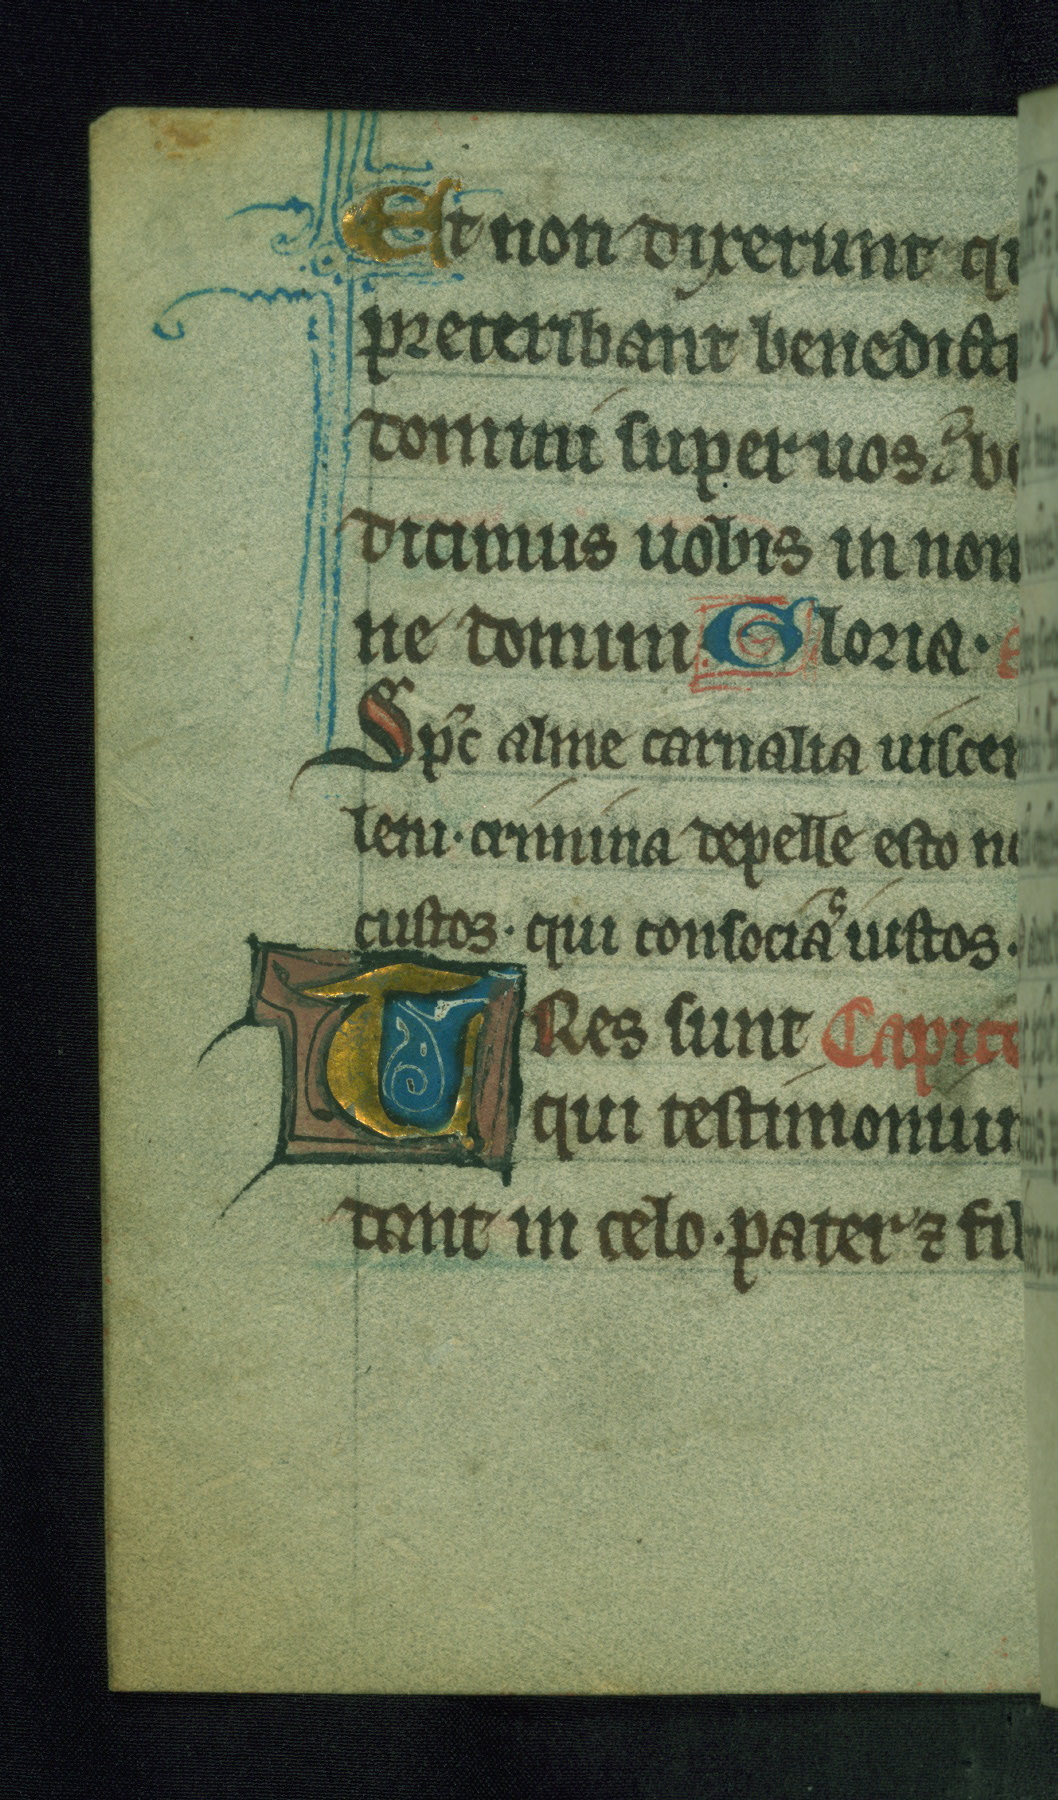 Et non dixerunt qu
preteribant benedicti
domini super uos: be
dicimus uobis in nom
ne domini Gloria.
Spc alme carnalia uiscer
leni. crimina depelle esto no
custos. qui consocias iustos.
TRes sunt Capit
qui testimonium
dant in celo. pater ⁊ fil